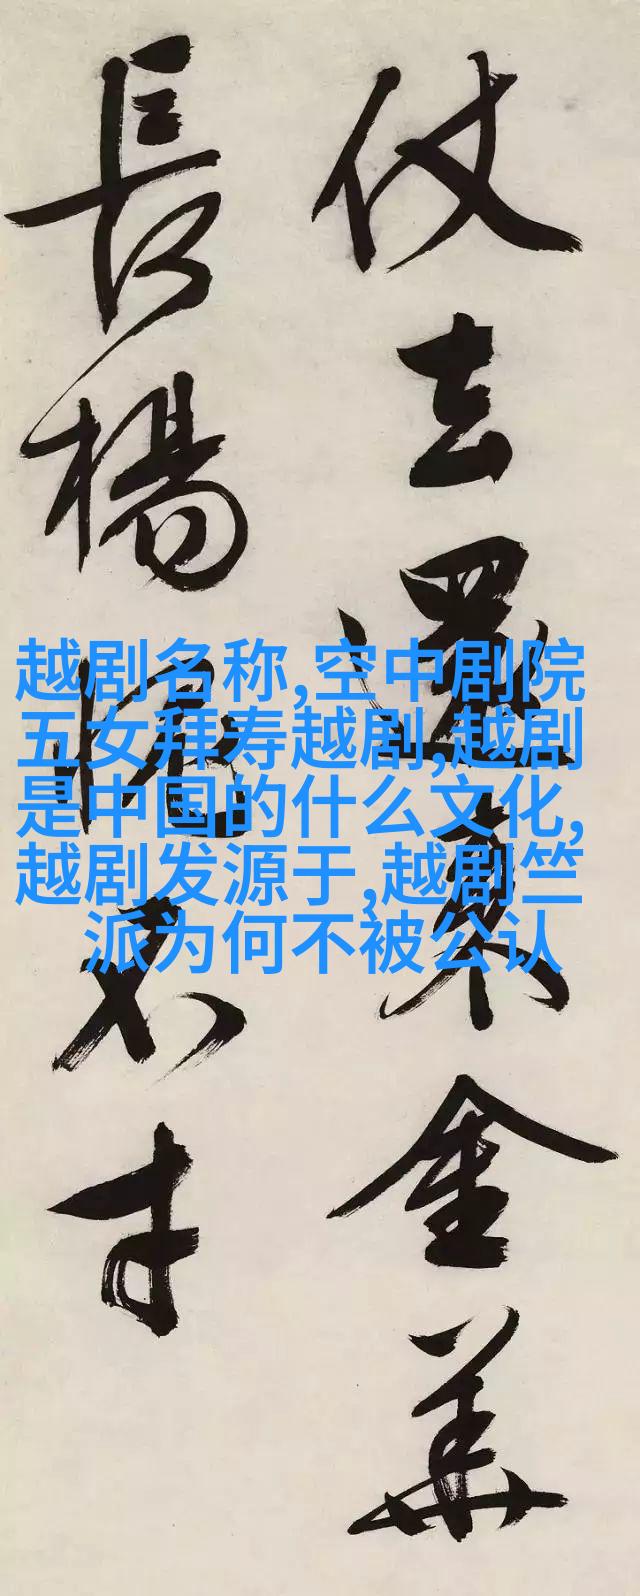 仗去還金華
長楊不才
越剧名称,空中剧院
五女拜寿越剧,越剧
是中国的什么文化,
越剧发源于,越剧竺
派为何不被公认